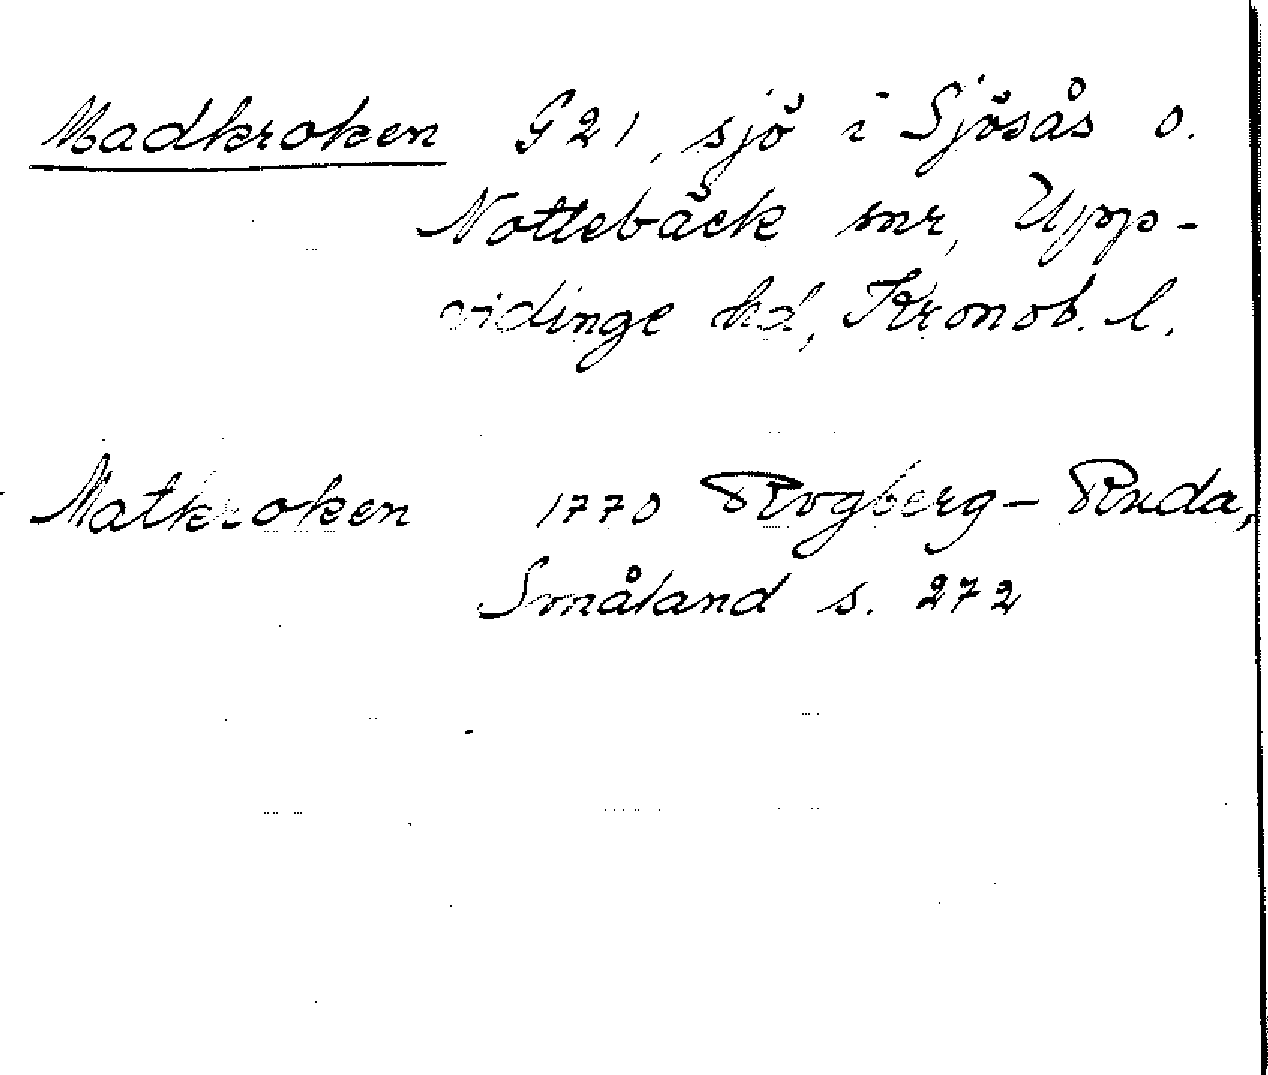 Madkroken G 21, sjö i Sjösås o.
Nottebäck snr, Upp-
vidinge hd, Kronob. l.
Matkroken 1770 Rogberg-Ruda,
Småland s. 272